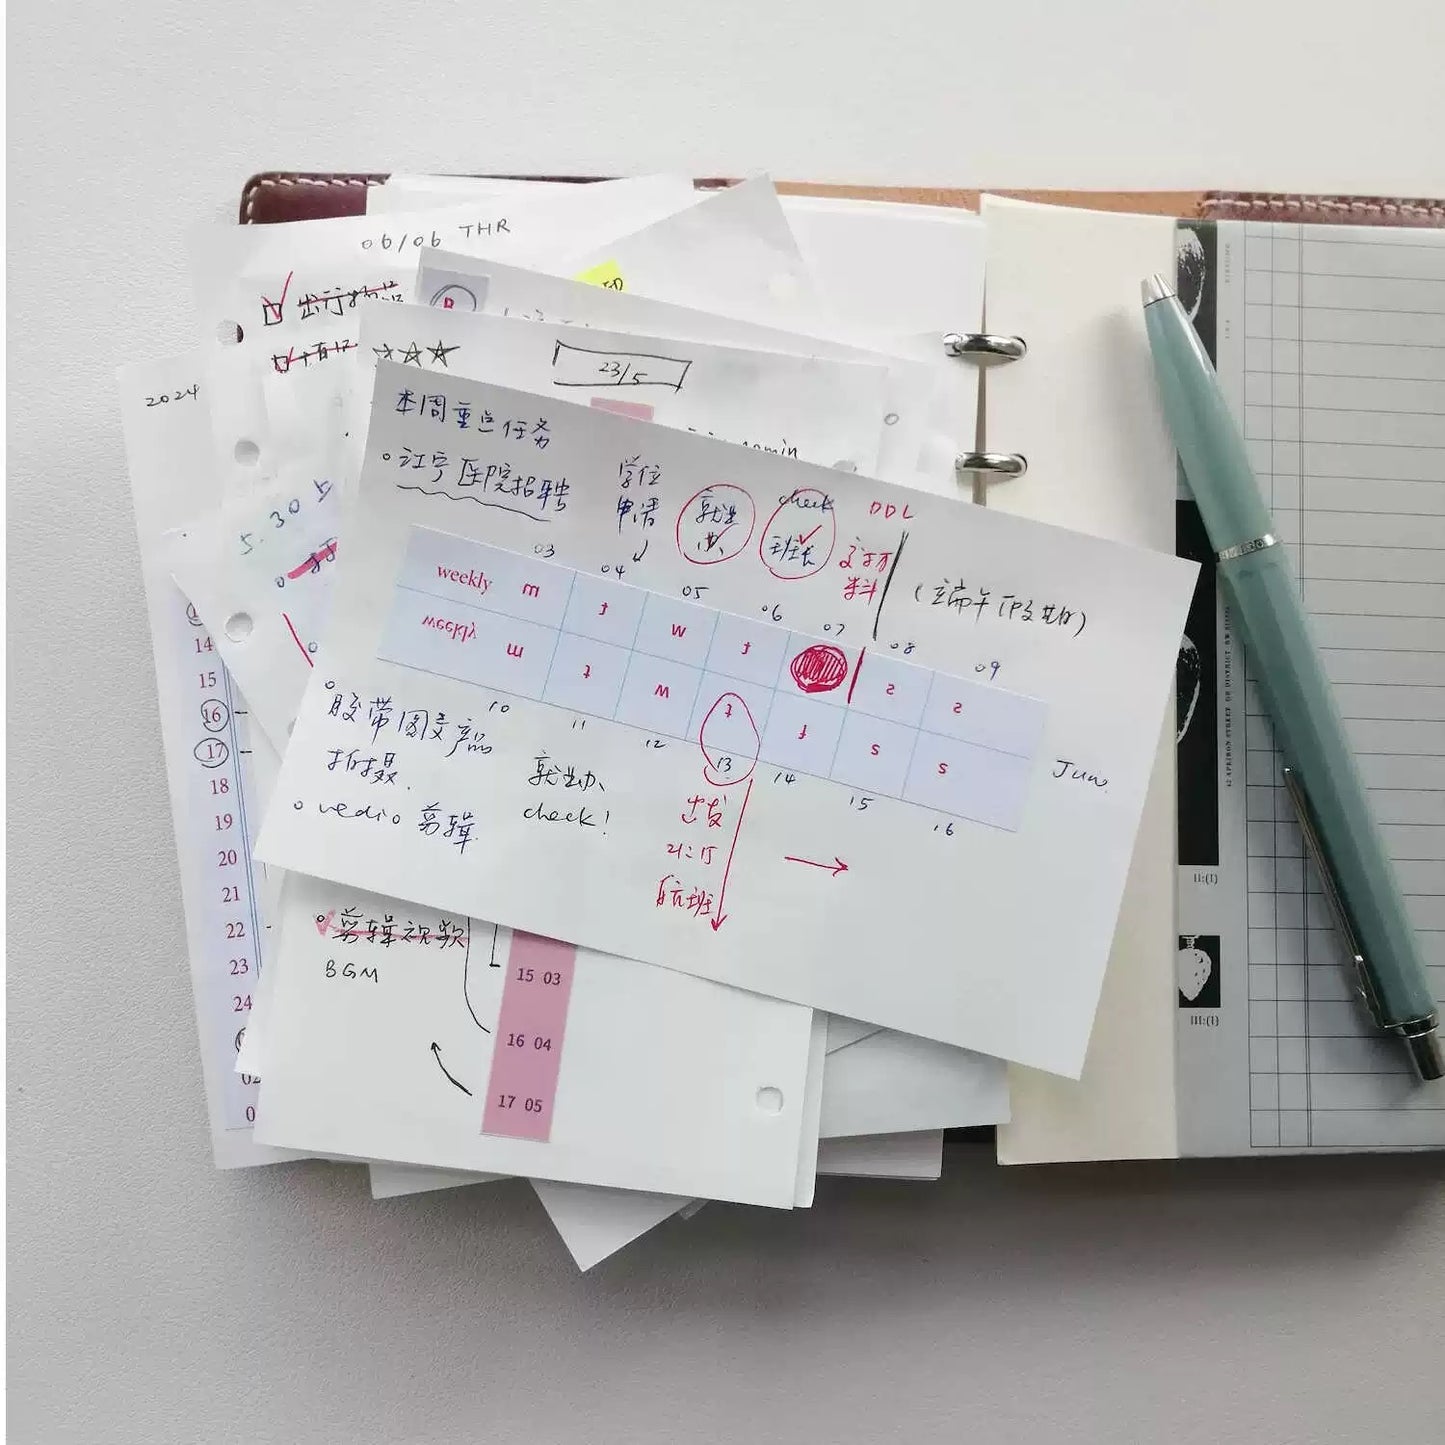 06/06 THR
出行物品
2024
23/5
5.30
本周重点任务
江宁医院招聘
学位
申请
就业
办
check
班长
DDL
交材
料
(端午假期)
03
04
05
06
07
08
09
weekly m t w t s s
weekly m t w t f s s
10
11
12
13
14
15
16
June
胶带图文产品
拍摄.
vedio 剪辑.
就业办
check!
出发
航班
14
15
16
17
18
19
20
21
22
23
24
02
剪辑视频
BGM
15 03
16 04
17 05
II:(I)
III:(I)